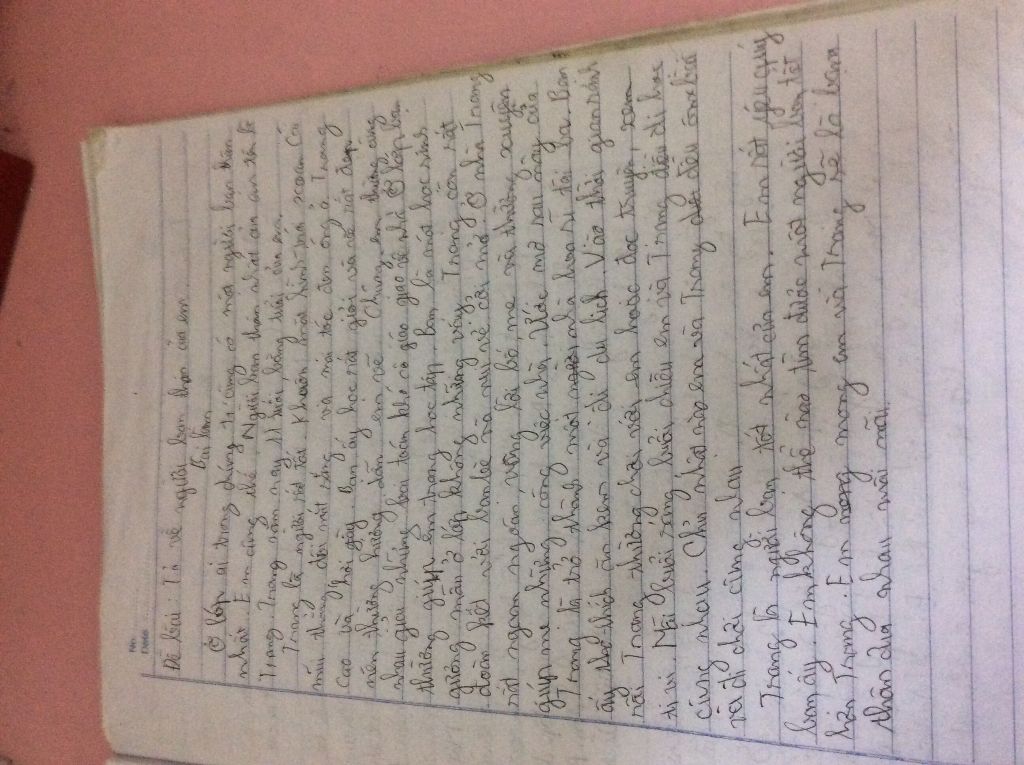 No.
Date
Đề bài: Tả về người bạn thân của em
Bài làm
Ở lớp ai trong chúng ta cũng có một người bạn thân
nhất. Em cũng thế. Người bạn thân nhất của em tên là
Trang. Trang năm nay 11 tuổi, bằng tuổi của em.
Trang là người rất tốt. Khuôn mặt hình trái xoan có
màu trắng, đôi mắt sáng và mái tóc đen óng ả. Trang
cao và hơi gầy. Bạn ấy học rất giỏi và vẽ rất đẹp
nên thường hướng dẫn em vẽ. Chúng em thường cùng
nhau giải những bài toán khó cô giáo giao về nhà. Ở lớp, bạn
thường giúp em trong học tập. Bạn là một học sinh
gương mẫn ở lớp. Không những vậy, Trang còn rất
đoàn kết với bạn bè và vui vẻ cởi mở. Ở nhà Trang
rất ngoan ngoãn vâng lời bố mẹ và thường xuyên
giúp mẹ những công việc nhà. Ước mơ sau này của
Trang là trở thành một nhà hoạ sĩ tài ba. Bạn
ấy thích ăn kem và đi du lịch. Vào thời gian rảnh
rỗi Trang thường chơi với em hoặc đọc truyện, xem
tivi. Mỗi buổi sáng, buổi chiều em và Trang đều đi học
cùng nhau. Chủ nhật nào em và Trang đều ôn bài
và đi chơi cùng nhau
Trang là người bạn tốt nhất của em. Em rất yêu quý
bạn ấy. Em không thể nào tìm được một người bạn tốt
hơn Trang. Em mong mong em và Trang sẽ là bạn
thân của nhau mãi mãi.